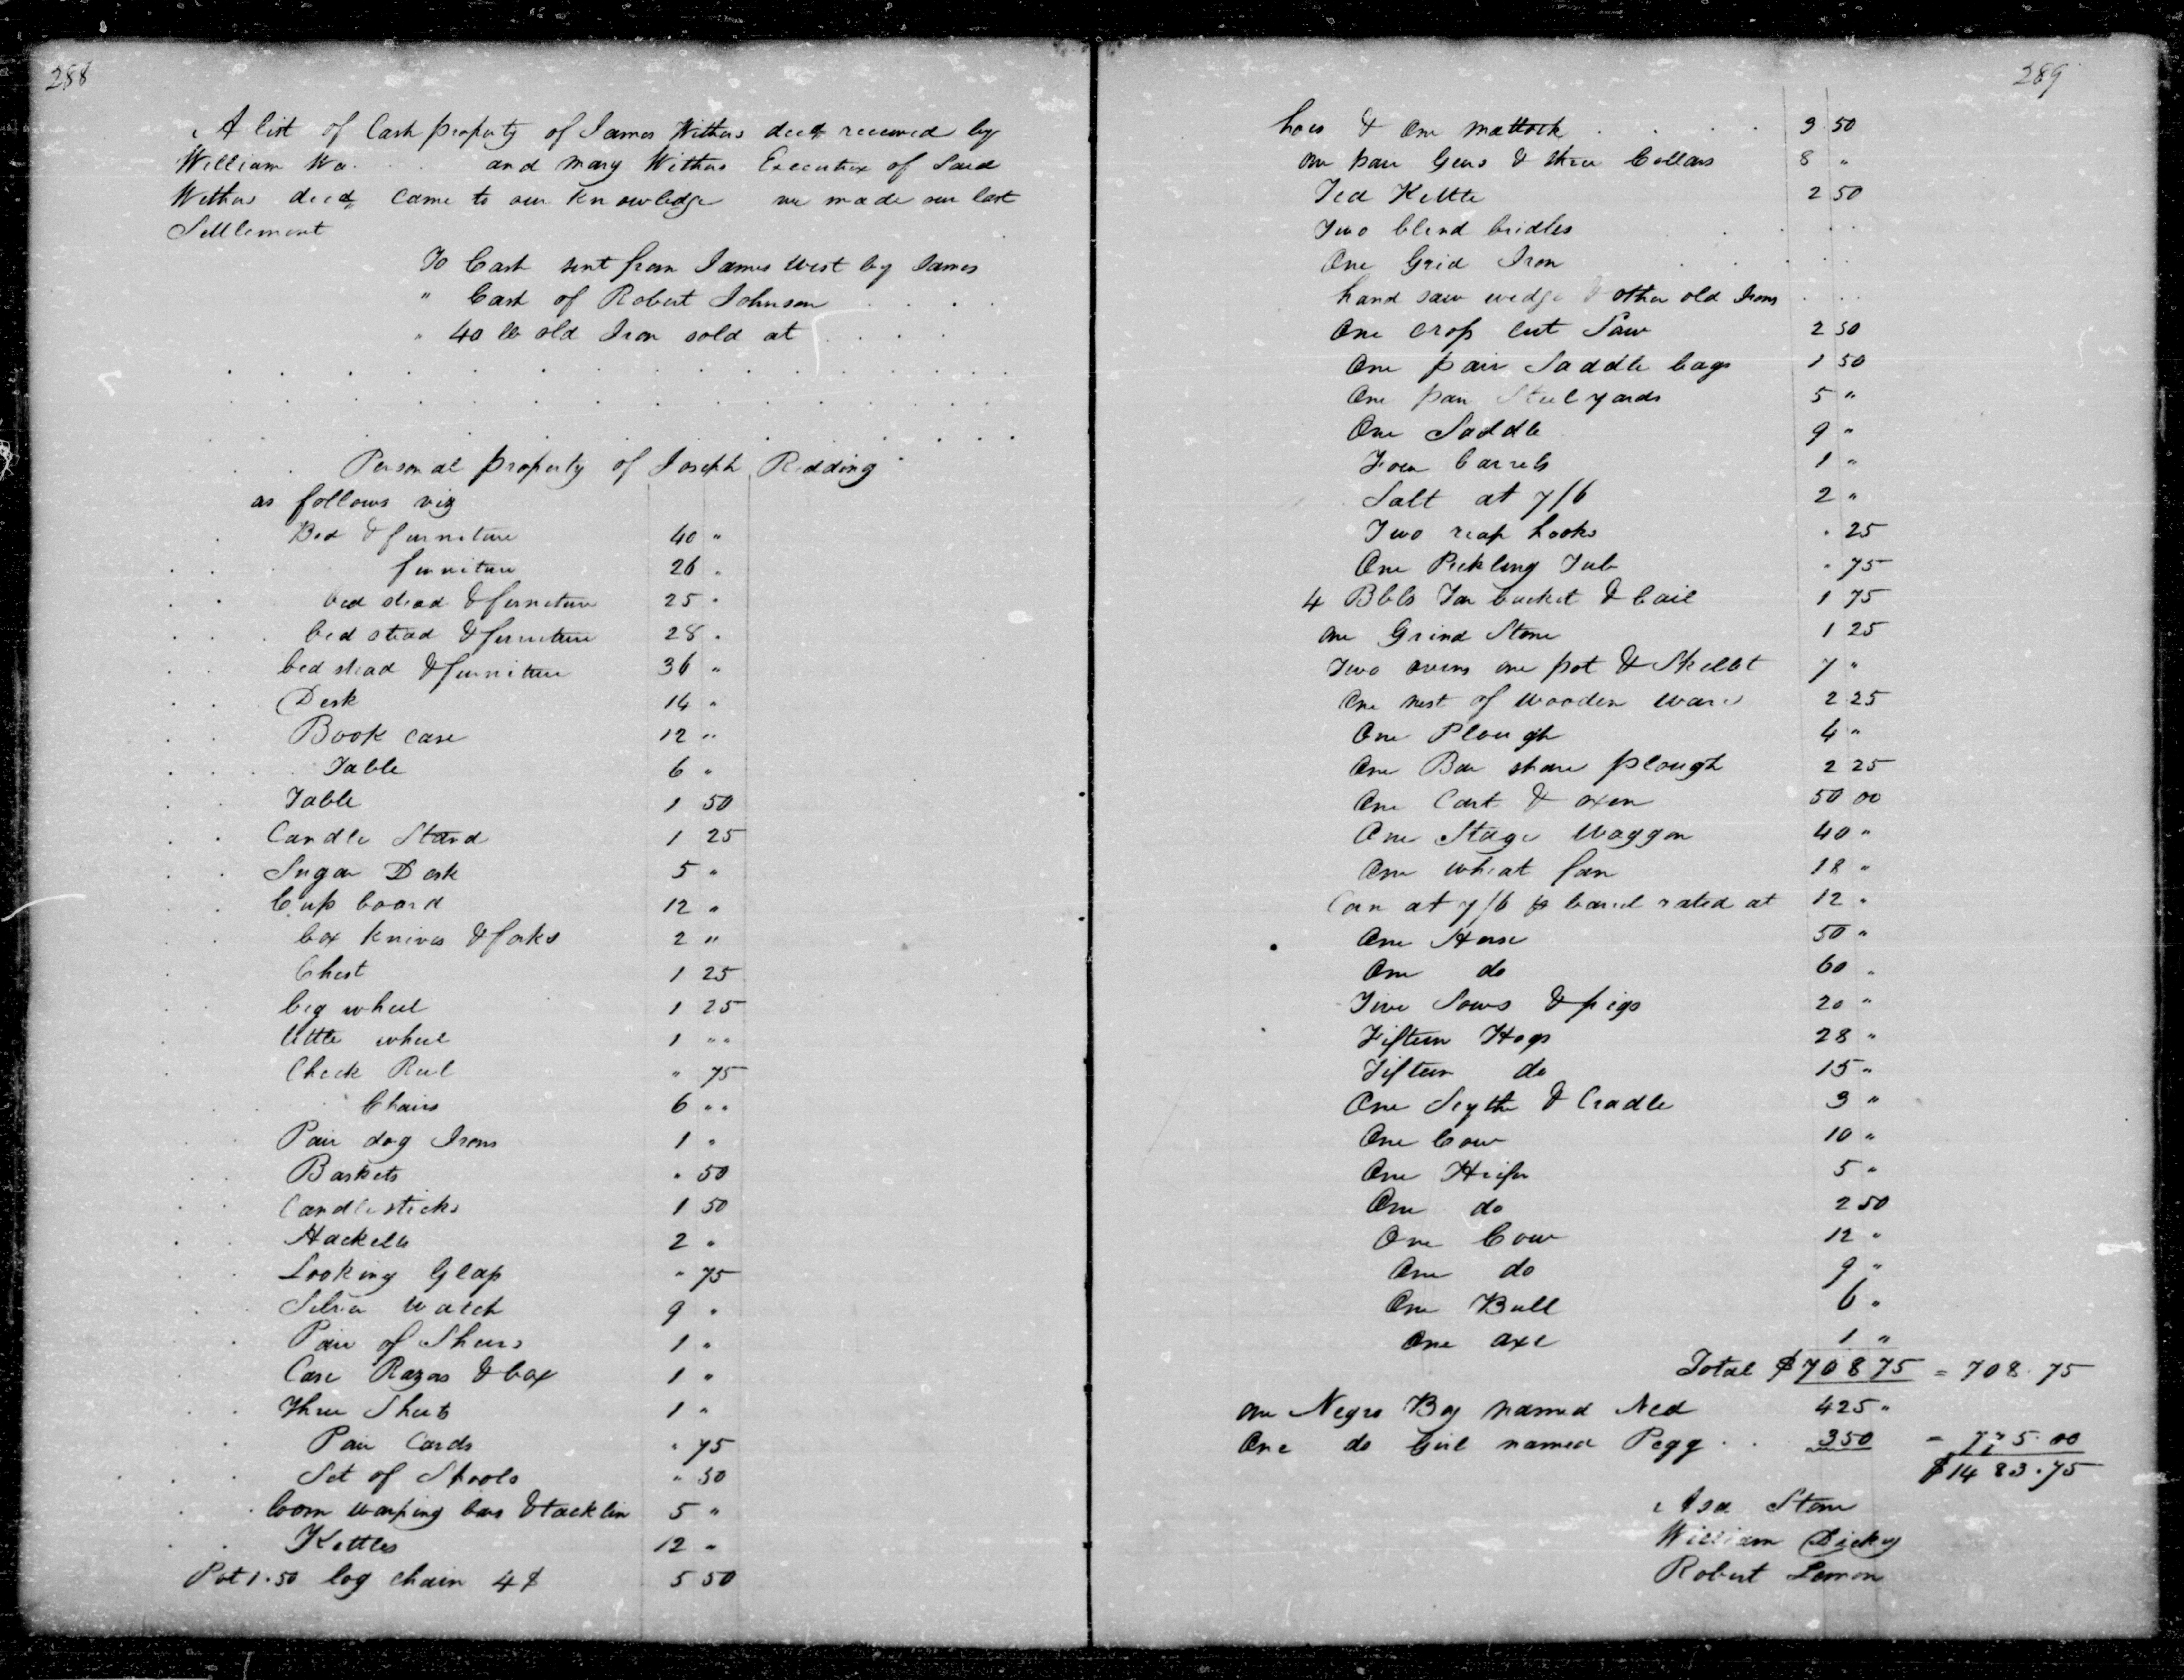 288
A list of Cash property of James Withers decd received by
William Wa. . . and Mary Withers Executrix of Said
Withers decd, came to our knowledge we made our last
Settlement
To Cash sent from James West by James
" Cash of Robert Johnson . . . .
" 40 lb old Iron sold at . . . .
Personal property of Joseph Redding
as follows viz
Bed & furniture 40 "
furniture 26 "
bed stead & furniture 25 "
bed stead & furniture 28 "
bed stead & furniture 36 "
Desk 14 "
Book case 12 "
Table 6 "
Table 1 50
Candle Stand 1 25
Sugar Desk 5 "
Cup board 12 "
box knives & forks 2 "
Chest 1 25
big wheel 1 25
little wheel 1 " "
Check Reel " 75
Chairs 6 " "
Pair dog Irons 1 "
Baskets " 50
Candlesticks 1 50
Hackells 2 "
Looking Glass " 75
Silver Watch 9 "
Pair of Shears 1 "
Case Razors & box 1 "
Three Sheets 1 "
Pair Cards " 75
Set of Spools " 50
loom warping bars & tacklin 5 "
Kettles 12 "
Pot 1.50 log chain 4$ 5 50
289
hoes & one mattock . . . . 3 50
one pair Gears & three Collars 8 "
Tea Kettle 2 50
Two blind bridles . . . .
One Grid Iron . . . .
hand saw wedge & other old Irons . . .
One crop cut Saw 2 50
One pair Saddle bags 1 50
One pair Steelyards 5 "
One Saddle 9 "
Four barrels 1 "
Salt at 7/6 2 "
Two reap hooks " 25
One Pickling Tub " 75
4 Bbls Tar bucket & bail 1 75
one Grind Stone 1 25
Two ovens one pot & Skellet 7 "
One nest of Wooden Ware 2 25
One Plough 4 "
One Bar share plough 2 25
One Cart & oxen 50 00
One Stage Waggon 40 "
One wheat fan 18 "
Corn at 7/6 p barrel rated at 12 "
One Horse 50 "
One do 60 "
Five Sows & pigs 20 "
Fifteen Hogs 28 "
Fifteen do 15 "
One Scythe & Cradle 3 "
One Cow 10 "
One Heifer 5 "
One do 2 50
One Cow 12 "
One do 9 "
One Bull 6 "
One axe 1 "
Total $708 75 = 708.75
one Negro Boy named Ned 425 "
One do Girl named Pegg . . 350 = 775.00
$1483.75
Asa Stone
William Dickey
Robert Lemon